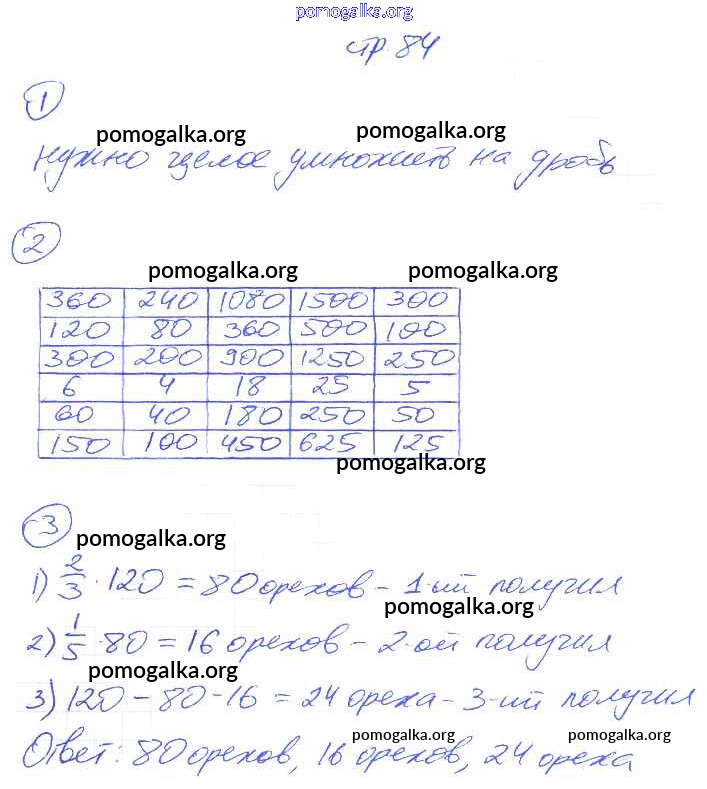 pomogalka.org
стр. 84
1
pomogalka.org pomogalka.org
нужно целое умножить на дробь
2
pomogalka.org pomogalka.org
360 240 1080 1500 300
120 80 360 500 100
300 200 900 1250 250
6 4 18 25 5
60 40 180 250 50
150 100 450 625 125
pomogalka.org
3
pomogalka.org
1) 2/3 · 120 = 80 орехов - 1-ый получил
pomogalka.org
2) 1/5 · 80 = 16 орехов - 2-ой получил
pomogalka.org
3) 120 - 80 - 16 = 24 ореха - 3-ий получил
pomogalka.org pomogalka.org
Ответ: 80 орехов, 16 орехов, 24 ореха